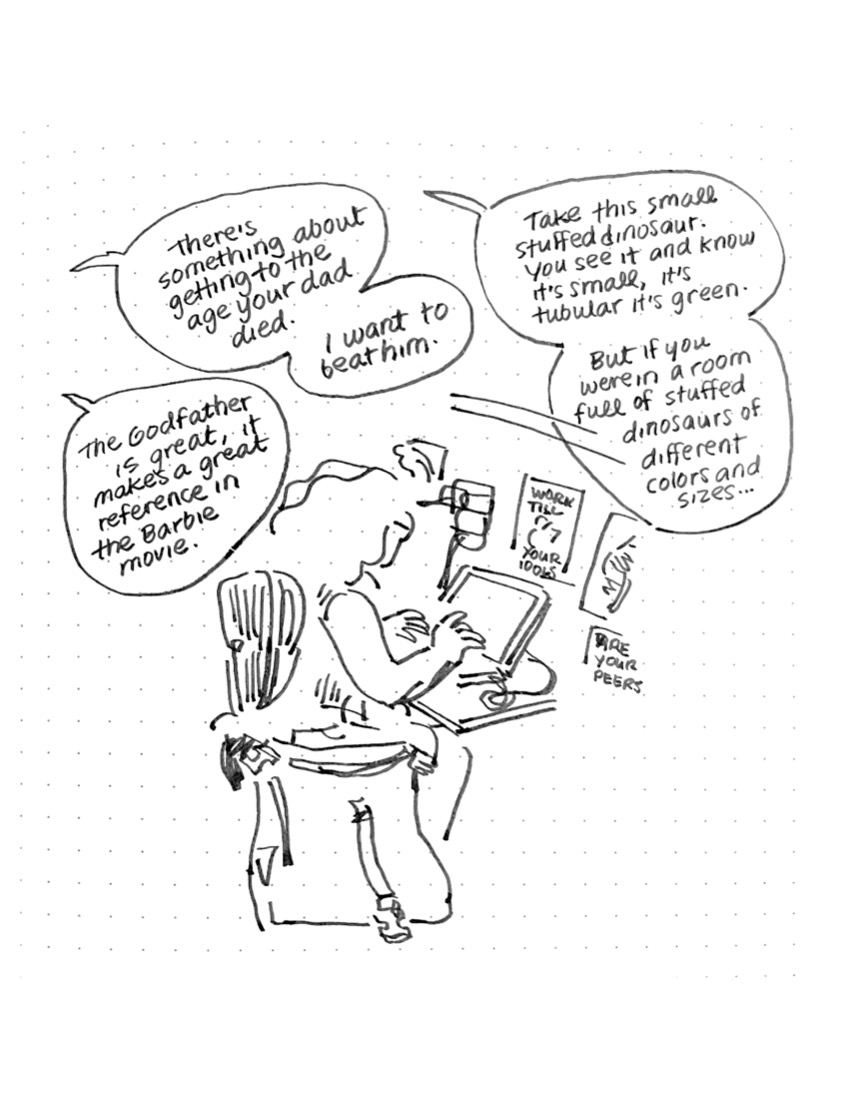 There's
something about
getting to the
age your dad
died.
I want to
beat him.
Take this small
stuffed dinosaur.
You see it and know
it's small, it's
tubular it's green.
But if you
were in a room
full of stuffed
dinosaurs of
different
colors and
sizes...
The Godfather
is great, it
makes a great
reference in
the Barbie
movie.
WORK
TILL
YOUR
IDOLS
ARE
YOUR
PEERS